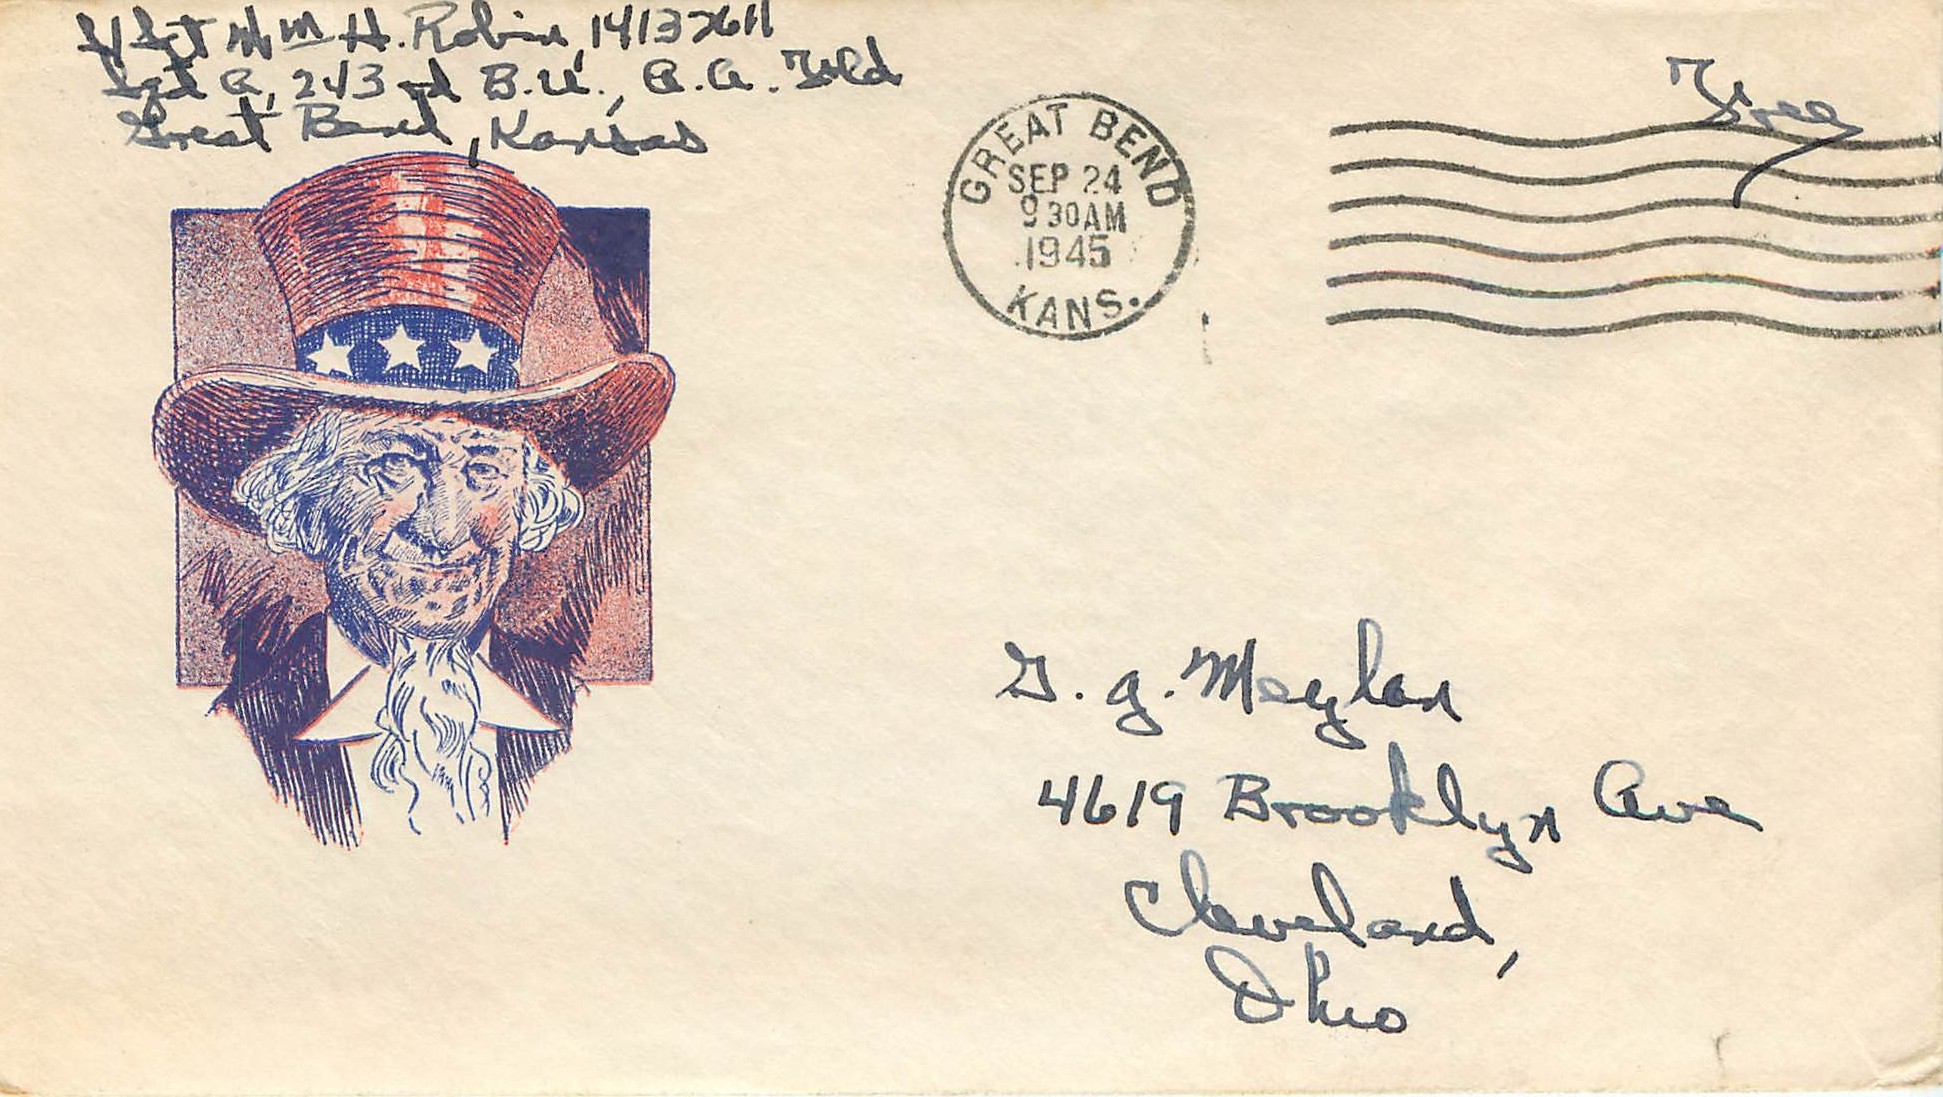 S/Sgt Wm H. Robin, 14137611
Sqd A, 243rd B.U., A.A. Fld
Great Bend, Kansas
Free
GREAT BEND
SEP 24
9 30AM
1945
KANS.
G. G. Meylan
4619 Brooklyn Ave
Cleveland,
Ohio